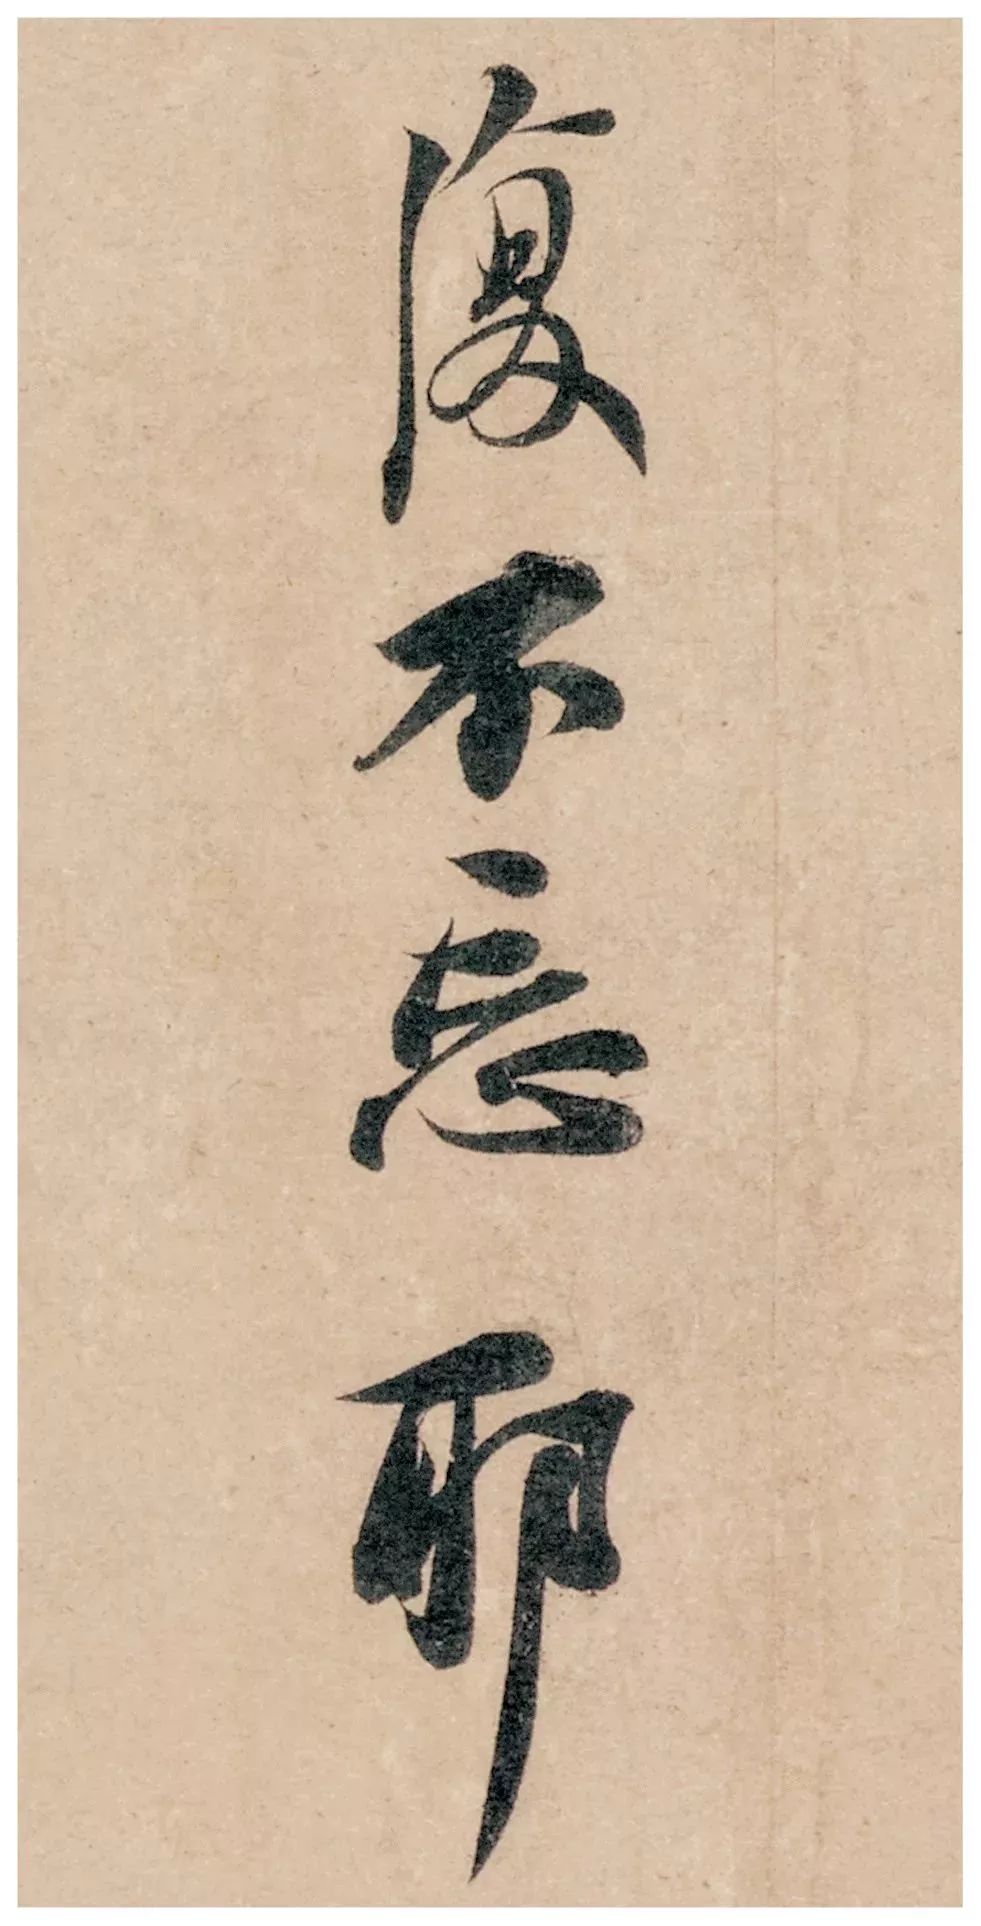 復不忘耶